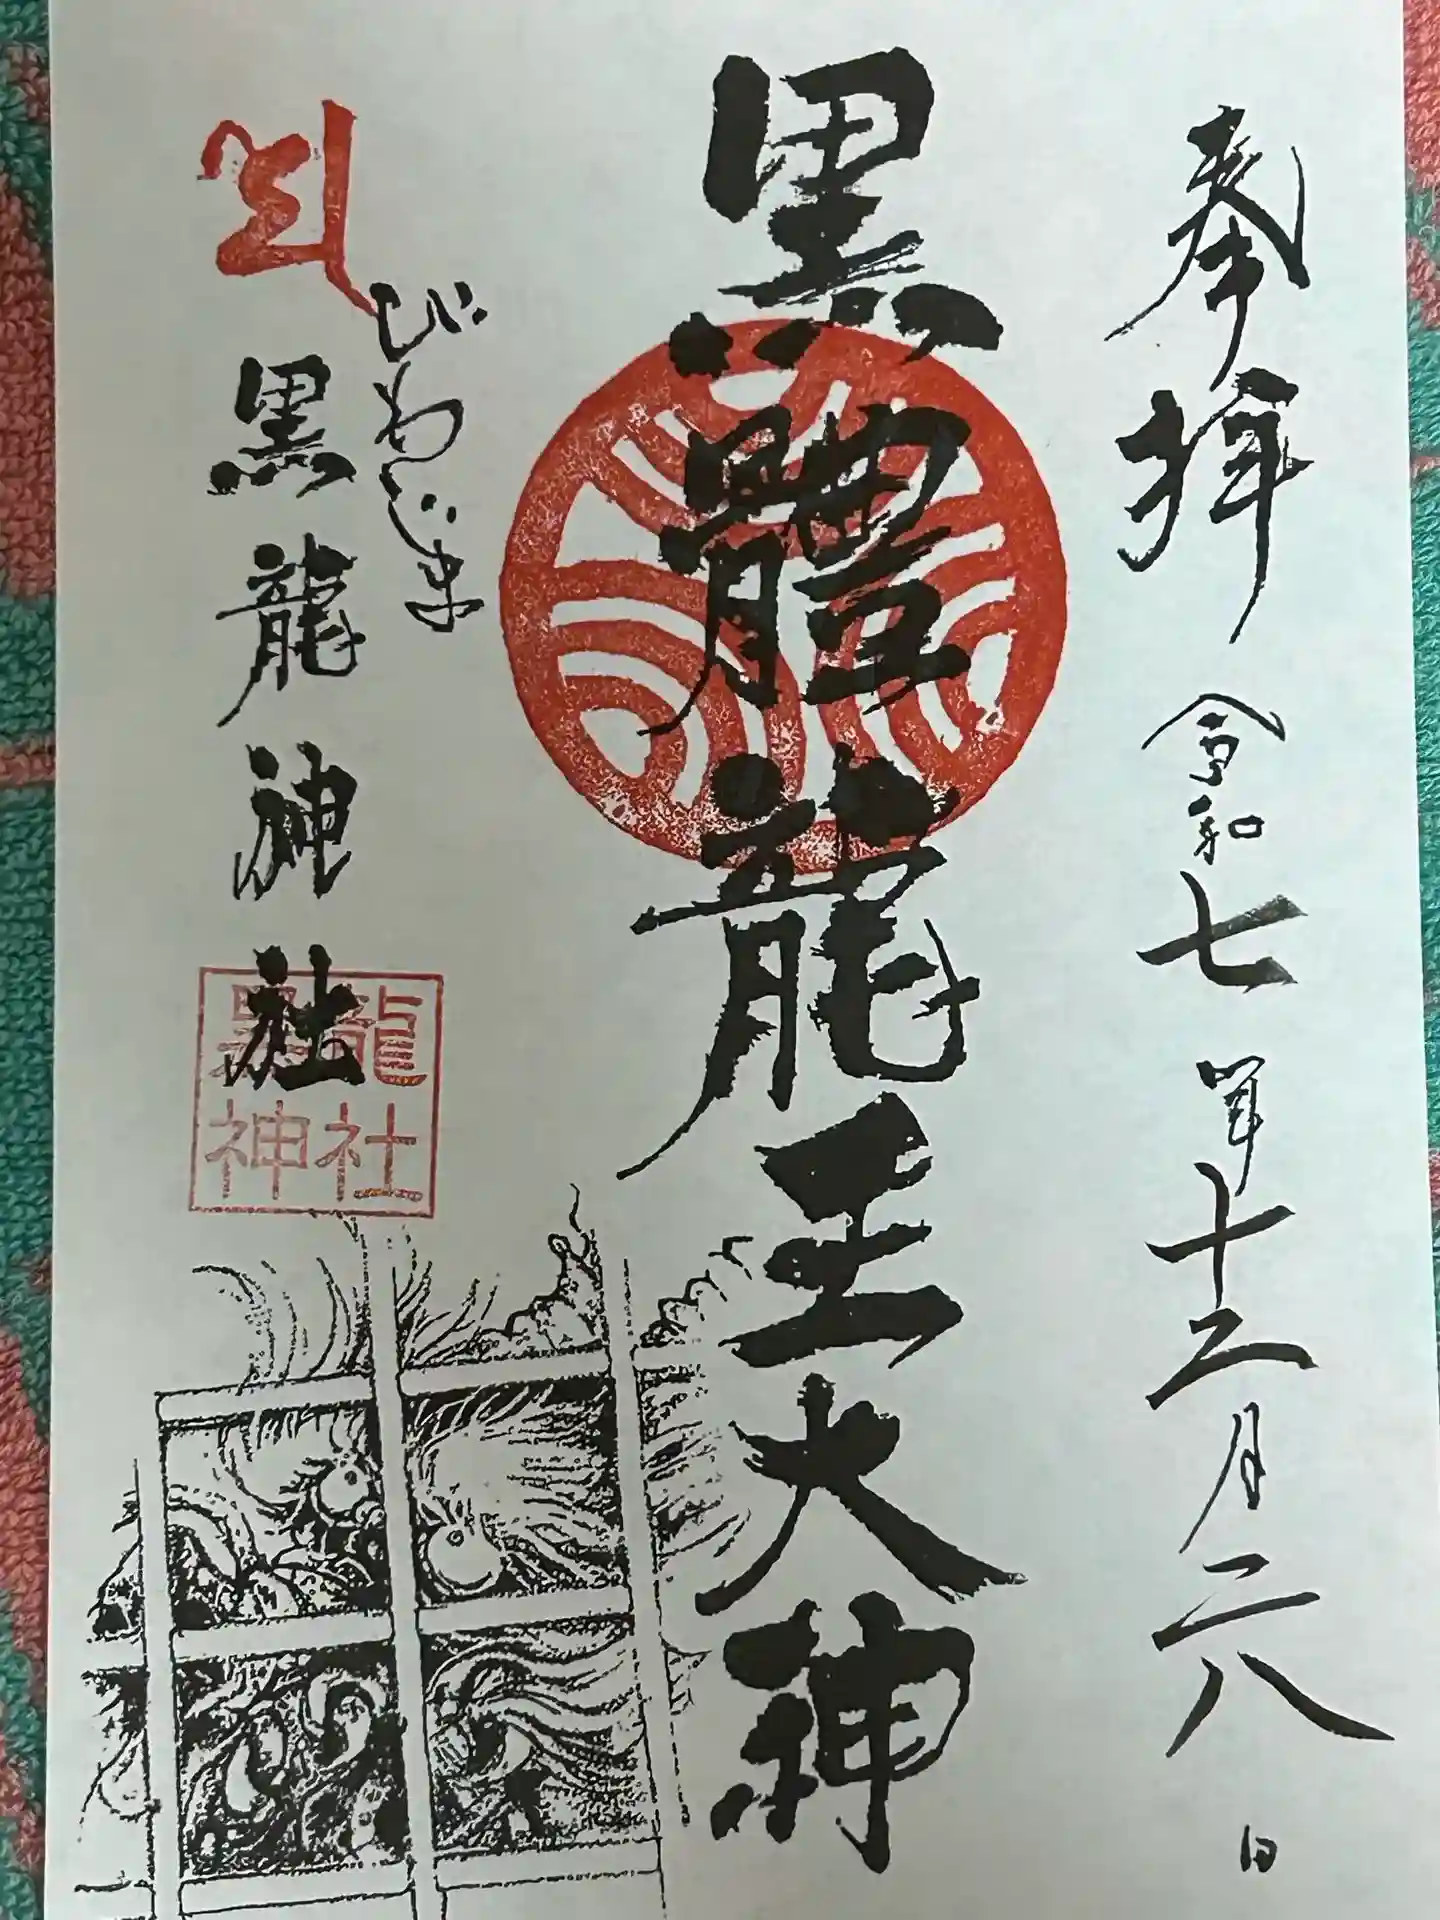 奉拝 令和七年十二月二八日
黒體龍王大神
びわじま
黒龍神社
黒龍
神社